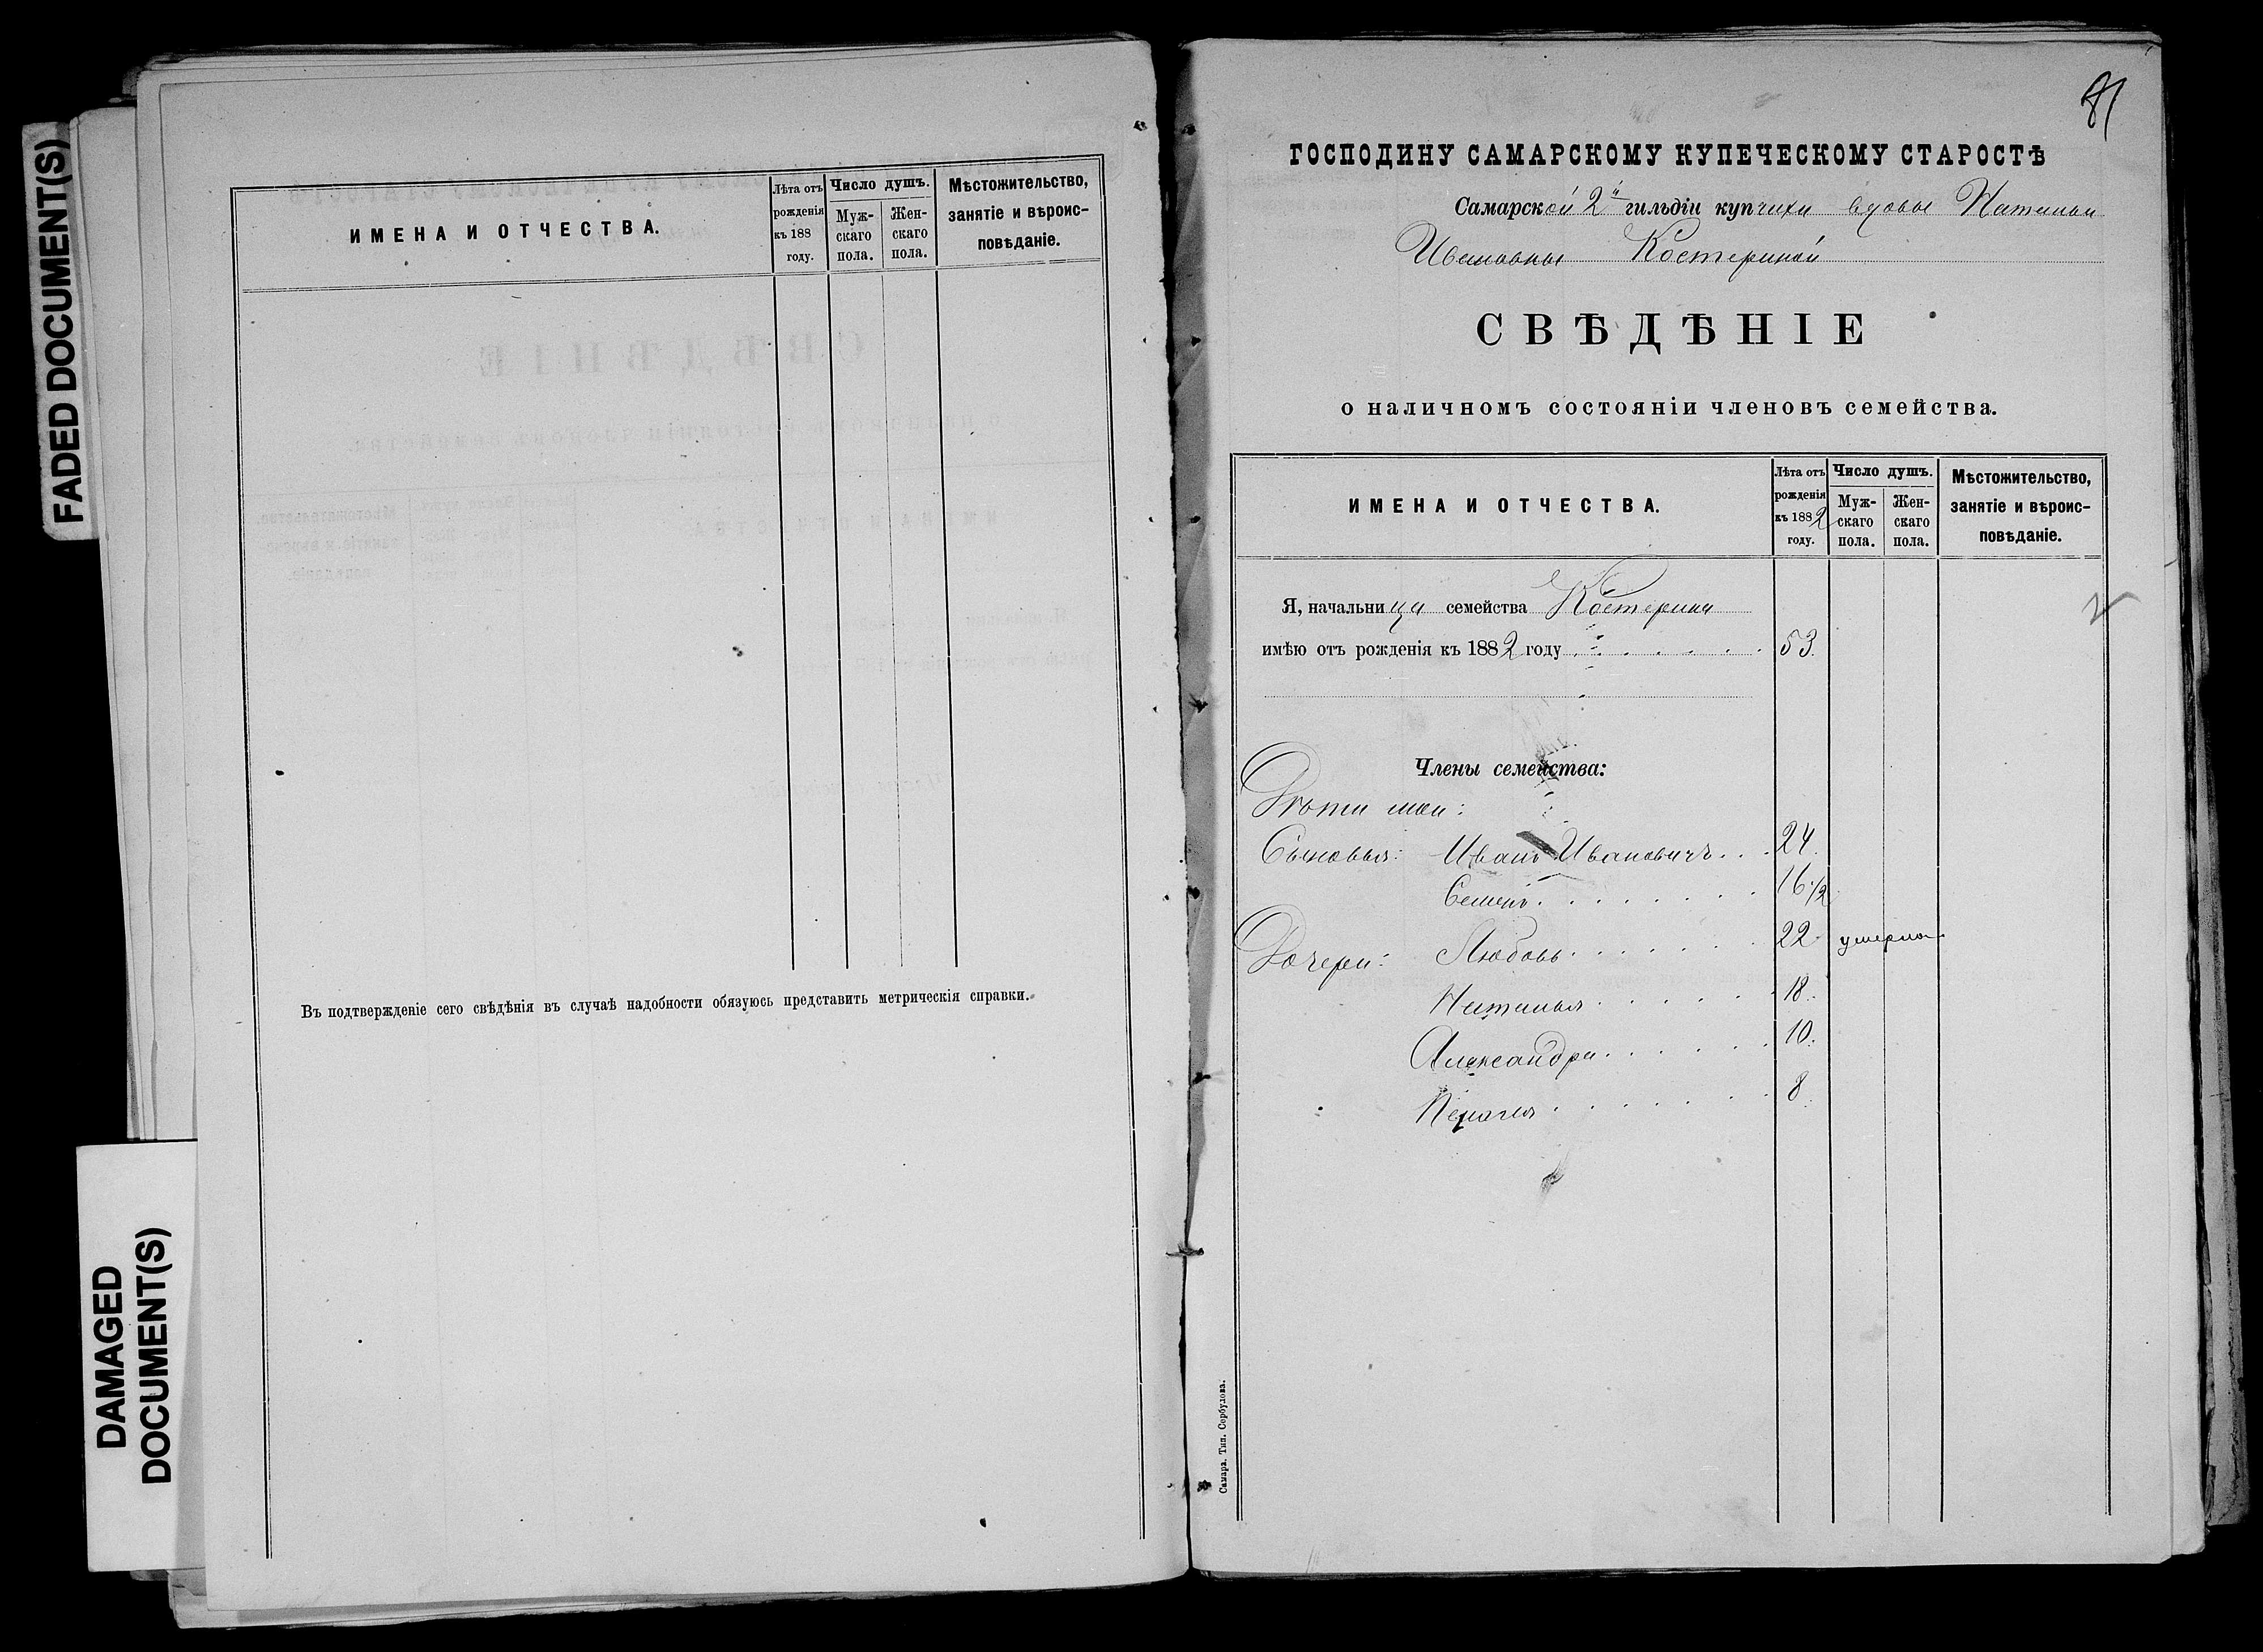 FADED DOCUMENT(S)
DAMAGED
DOCUMENT(S)
ИМЕНА И ОТЧЕСТВА.
Лѣта отъ
рожденія
къ 188
году.
Число душъ.
Муж-
скаго
пола.
Жен-
скаго
пола.
Мѣстожительство,
занятіе и вѣроис-
повѣданіе.
Въ подтвержденіе сего свѣдѣнія въ случаѣ надобности обязуюсь представить метрическія справки.
81
ГОСПОДИНУ САМАРСКОМУ КУПЕЧЕСКОМУ СТАРОСТѢ
Самарской 2й гильдіи купчихи вдовы Натальи
Ивановны Костериной
СВѢДѢНІЕ
о наличномъ состояніи членовъ семейства.
ИМЕНА И ОТЧЕСТВА.
Лѣта отъ
рожденія
къ 1882
году.
Число душъ.
Муж-
скаго
пола.
Жен-
скаго
пола.
Мѣстожительство,
занятіе и вѣроис-
повѣданіе.
Я, начальница семейства Костерина
имѣю отъ рожденія къ 1882 году 53.
Члены семейства:
Дѣти мои:
Сыновья: Иванъ Ивановичъ . . . 24.
Семенъ . . . . . . . 16 1/2
Дочери: Любовь . . . . . . 22 умерла
Наталья . . . . . . 18.
Александра . . . . . 10.
Пелагея . . . . . . . 8.
Самара. Тип. Сербулова.